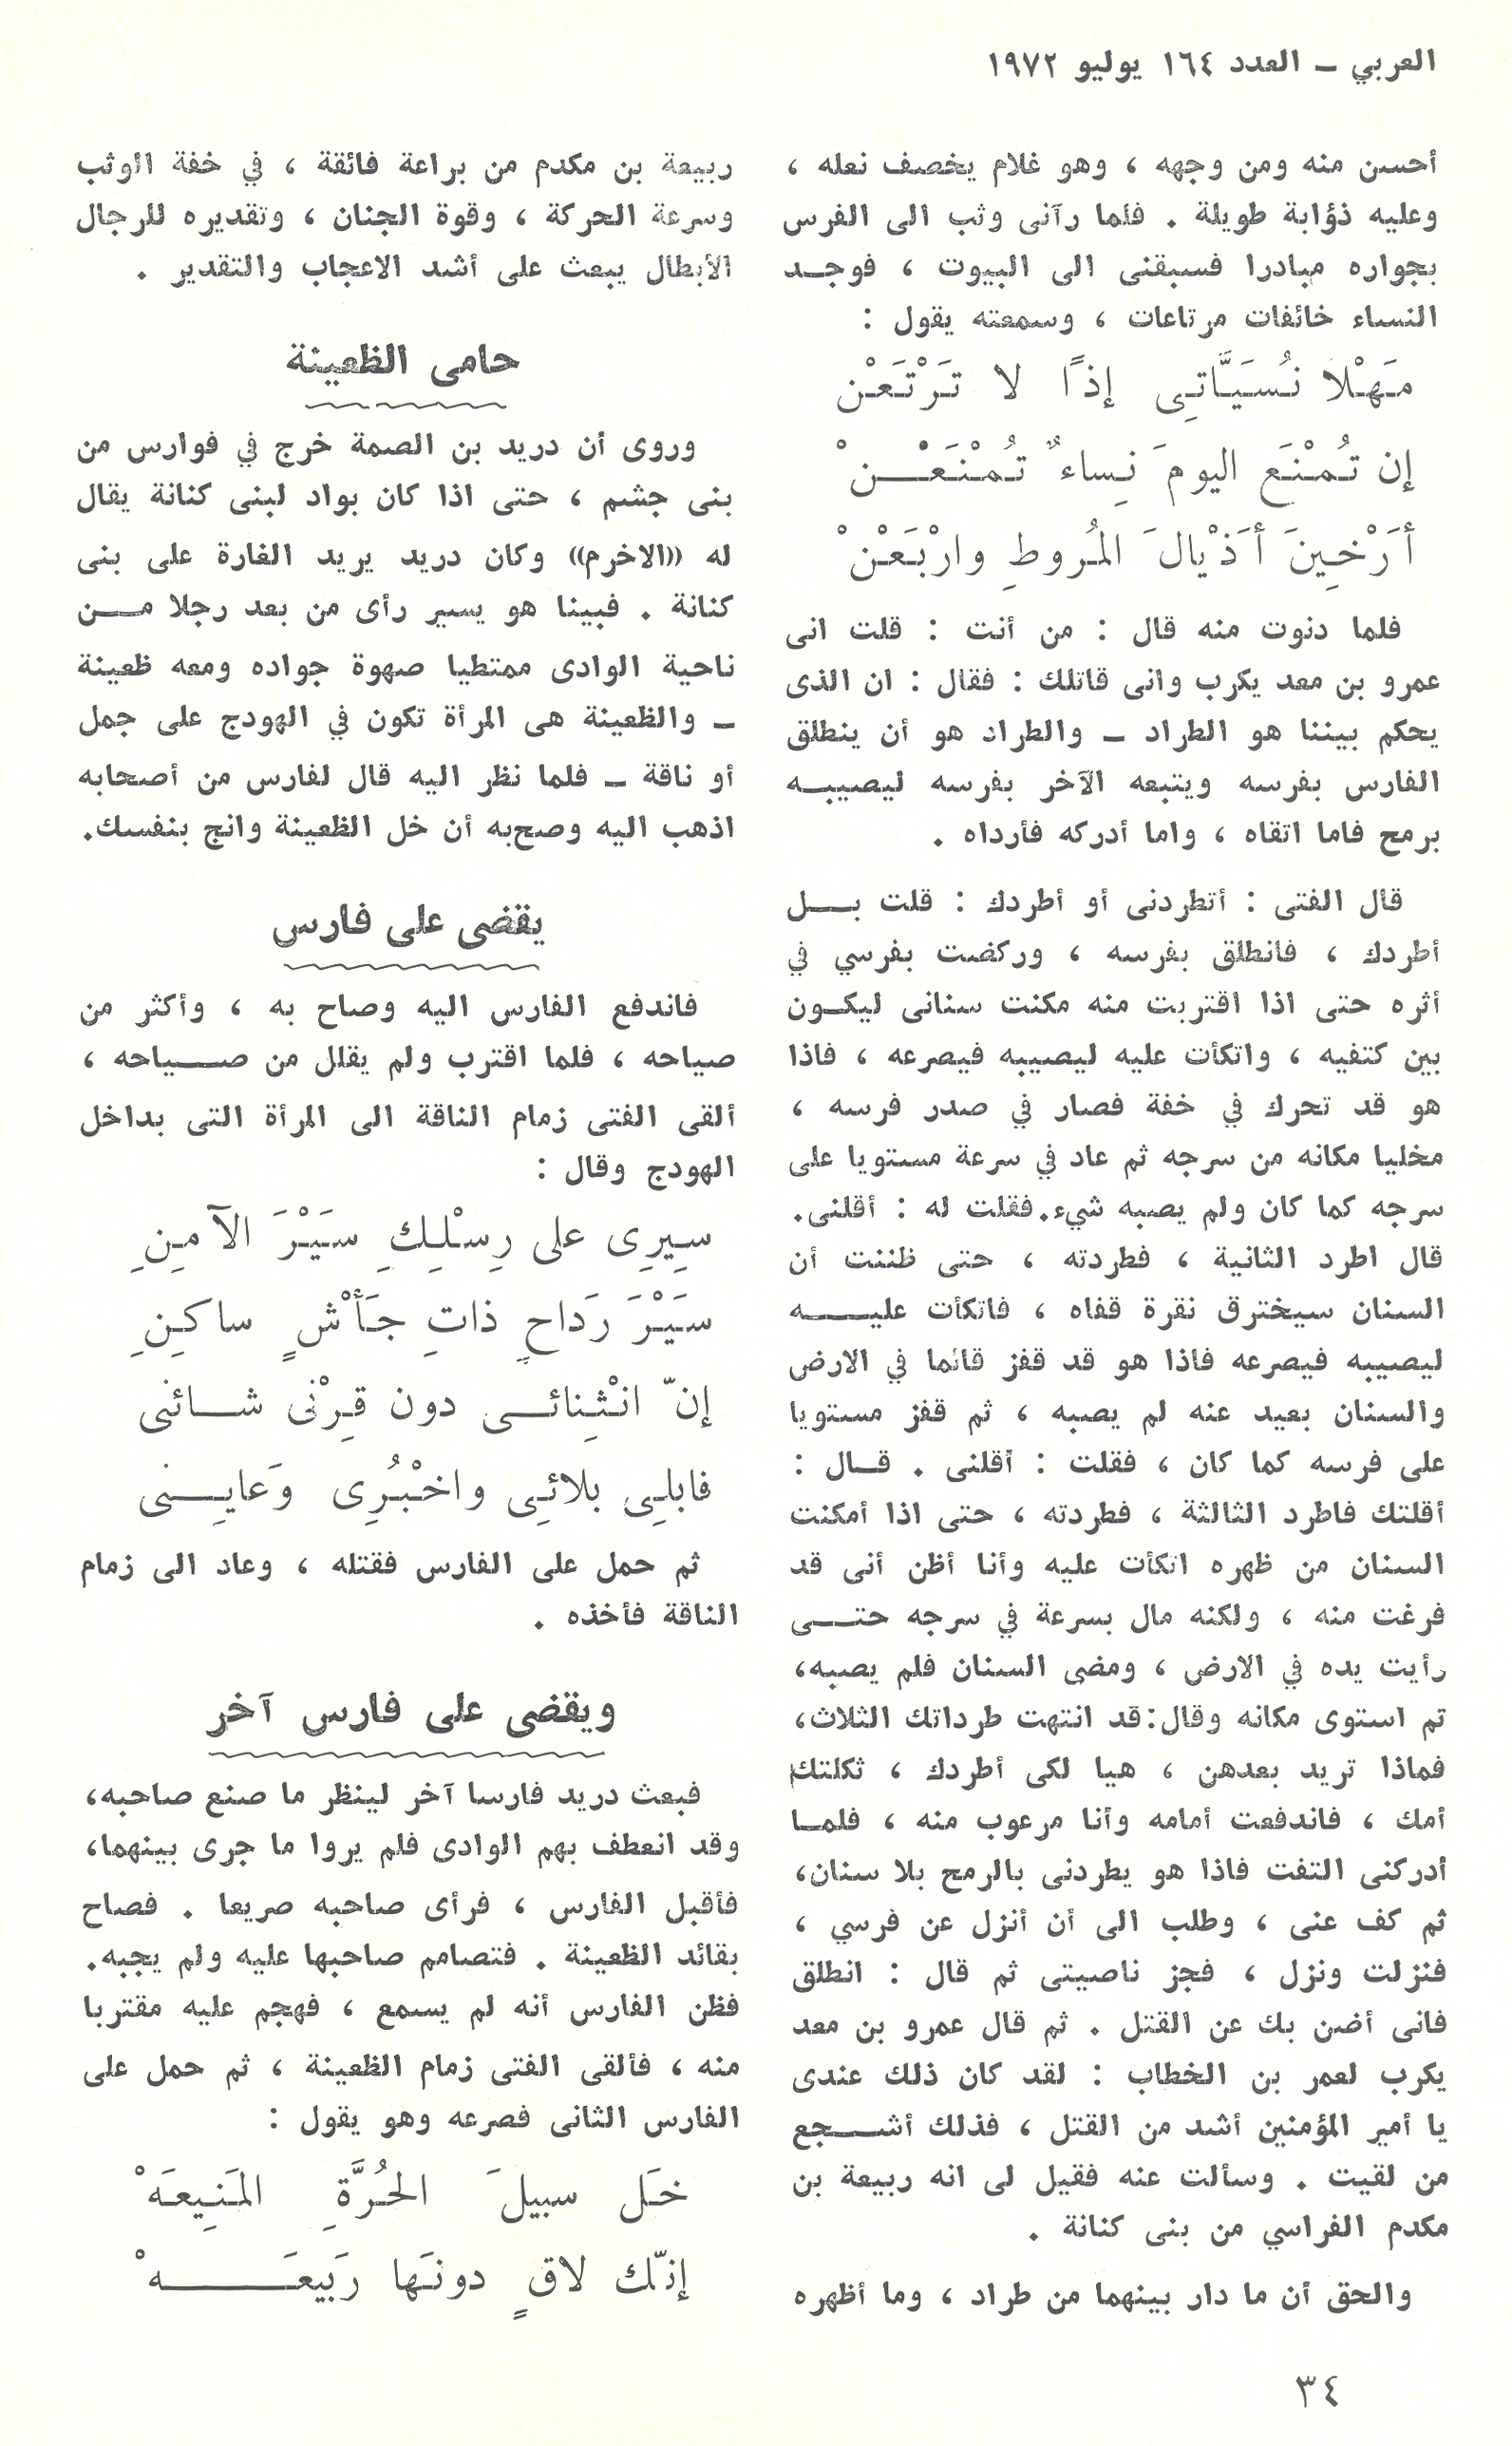 العربي – العدد ١٦٤ يوليو ١٩٧٢
أحسن منه ومن وجهه ، وهو غلام يخصف نعله ،
وعليه ذؤابة طويلة . فلما رآنى وثب الى الفرس
بجواره مبادرا فسبقنى الى البيوت ، فوجد
النساء خائفات مرتاعات ، وسمعته يقول :
مَهْلا نُسَيَّاتِى إذًا لا تَرْتَعْن
إن تُمْنَع اليومَ نِساءٌ تُمْنَعْنْ
أرْخِينَ أذْيالَ المُروطِ وارْبَعْنْ
فلما دنوت منه قال : من أنت : قلت انى
عمرو بن معد يكرب وانى قاتلك : فقال : ان الذى
يحكم بيننا هو الطراد – والطراد هو أن ينطلق
الفارس بفرسه ويتبعه الآخر بفرسه ليصيبه
برمح فاما اتقاه ، واما أدركه فأرداه .
قال الفتى : أتطردنى أو أطردك : قلت بل
أطردك ، فانطلق بفرسه ، وركضت بفرسي في
أثره حتى اذا اقتربت منه مكنت سنانى ليكون
بين كتفيه ، واتكأت عليه ليصيبه فيصرعه ، فاذا
هو قد تحرك في خفة فصار في صدر فرسه ،
مخليا مكانه من سرجه ثم عاد في سرعة مستويا على
سرجه كما كان ولم يصبه شيء. فقلت له : أقلنى.
قال اطرد الثانية ، فطردته ، حتى ظننت أن
السنان سيخترق نقرة قفاه ، فاتكأت عليه
ليصيبه فيصرعه فاذا هو قد قفز قائما في الارض
والسنان بعيد عنه لم يصبه ، ثم قفز مستويا
على فرسه كما كان ، فقلت : أقلنى . قال :
أقلتك فاطرد الثالثة ، فطردته ، حتى اذا أمكنت
السنان من ظهره اتكأت عليه وأنا أظن أنى قد
فرغت منه ، ولكنه مال بسرعة في سرجه حتى
رأيت يده في الارض ، ومضى السنان فلم يصبه،
ثم استوى مكانه وقال: قد انتهت طرداتك الثلاث،
فماذا تريد بعدهن ، هيا لكى أطردك ، ثكلتك
أمك ، فاندفعت أمامه وأنا مرعوب منه ، فلما
أدركنى التفت فاذا هو يطردنى بالرمح بلا سنان،
ثم كف عنى ، وطلب الى أن أنزل عن فرسي ،
فنزلت ونزل ، فجز ناصيتى ثم قال : انطلق
فانى أضن بك عن القتل . ثم قال عمرو بن معد
يكرب لعمر بن الخطاب : لقد كان ذلك عندى
يا أمير المؤمنين أشد من القتل ، فذلك أشجع
من لقيت . وسألت عنه فقيل لى انه ربيعة بن
مكدم الفراسي من بنى كنانة .
والحق أن ما دار بينهما من طراد ، وما أظهره
ربيعة بن مكدم من براعة فائقة ، في خفة الوثب
وسرعة الحركة ، وقوة الجنان ، وتقديره للرجال
الأبطال يبعث على أشد الاعجاب والتقدير .
حامى الظعينة
وروى أن دريد بن الصمة خرج في فوارس من
بنى جشم ، حتى اذا كان بواد لبنى كنانة يقال
له ((الاخرم)) وكان دريد يريد الغارة على بنى
كنانة . فبينا هو يسير رأى من بعد رجلا من
ناحية الوادى ممتطيا صهوة جواده ومعه ظعينة
– والظعينة هى المرأة تكون في الهودج على جمل
أو ناقة – فلما نظر اليه قال لفارس من أصحابه
اذهب اليه وصح‌به أن خل الظعينة وانج بنفسك.
يقضى على فارس
فاندفع الفارس اليه وصاح به ، وأكثر من
صياحه ، فلما اقترب ولم يقلل من صياحه ،
ألقى الفتى زمام الناقة الى المرأة التى بداخل
الهودج وقال :
سِيرِى على رِسْلِكِ سَيْرَ الآمِنِ
سَيْرَ رَداحٍ ذاتِ جَأْشٍ ساكِنِ
إنّ انْثِنائى دون قِرْنى شائنى
فابلِى بلائِى واخْبُرِى وَعايِنى
ثم حمل على الفارس فقتله ، وعاد الى زمام
الناقة فأخذه .
ويقضى على فارس آخر
فبعث دريد فارسا آخر لينظر ما صنع صاحبه،
وقد انعطف بهم الوادى فلم يروا ما جرى بينهما،
فأقبل الفارس ، فرأى صاحبه صريعا . فصاح
بقائد الظعينة . فتصامم صاحبها عليه ولم يجبه.
فظن الفارس أنه لم يسمع ، فهجم عليه مقتربا
منه ، فألقى الفتى زمام الظعينة ، ثم حمل على
الفارس الثانى فصرعه وهو يقول :
خَل سبيلَ الحُرَّةِ المَنِيعَهْ
إنّك لاقٍ دونَها رَبيعَهْ
٣٤